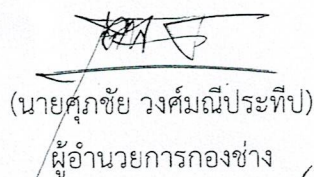 (นายศุภชัย วงศ์มณีประทีป)
ผู้อำนวยการกองช่าง